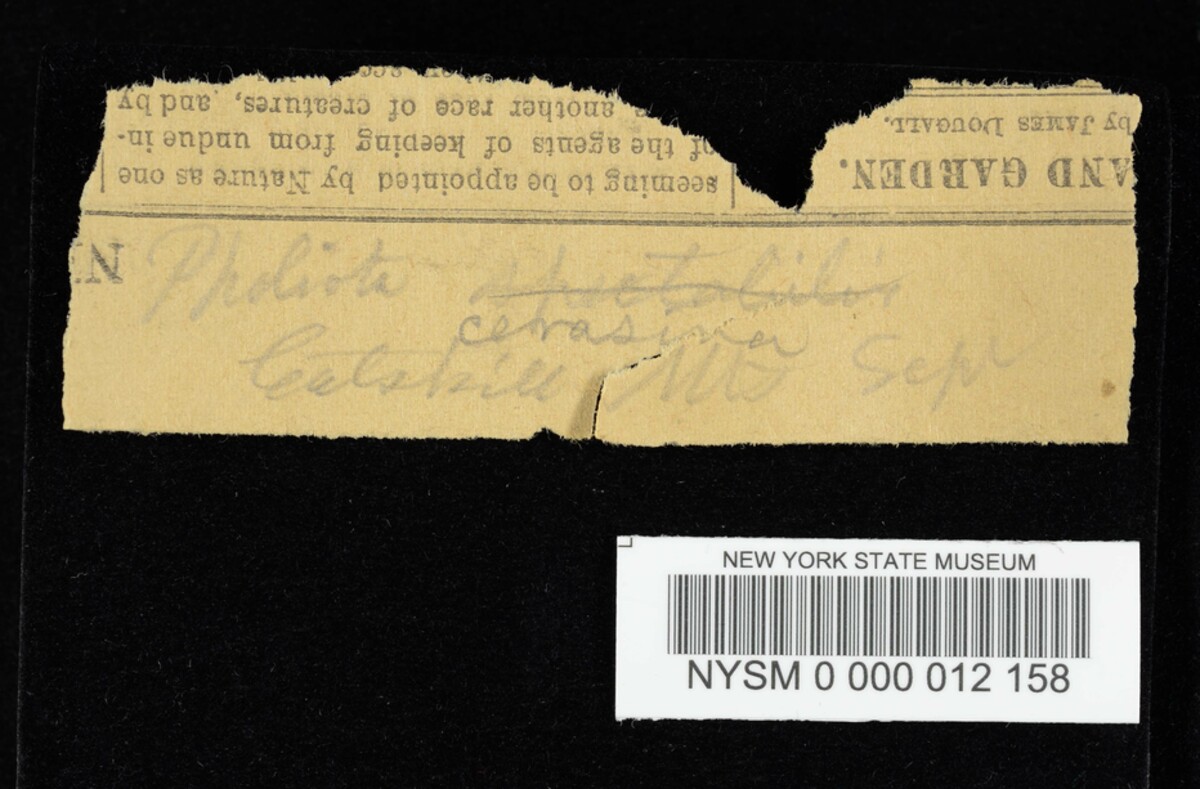 seeming to be appointed by Nature as one
of the agents of keeping from undue in-
another race of creatures, and by
AND GARDEN.
by JAMES DOUGALL.
N
Pholiota spectabilis
cerasina
Catskill Mts Sept
NEW YORK STATE MUSEUM
NYSM 0 000 012 158